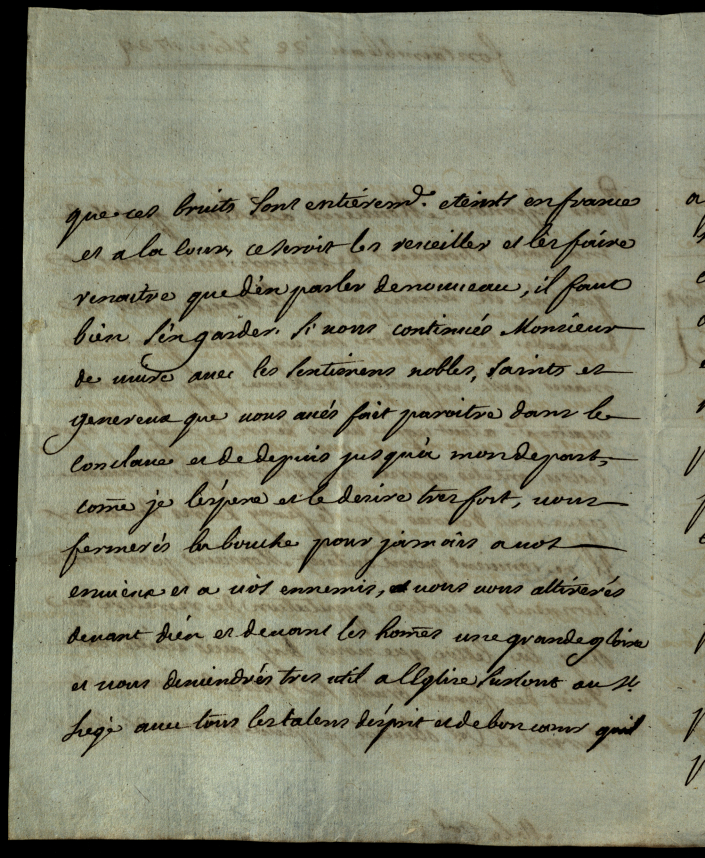 que ces bruits sont entiérem.t eteints en france
et a la Cour, ce seroit les reveiller et les faire
renaitre que d'en parler denouveau, il faut
bien s'en garder. Si vous continués Monsieur
de vivre avec les sentimens nobles, saints et
genereux que vous avés fait paroitre dans le
Conclave et de depuis jusqu'à mon depart,
come je l'espere et le desire tres fort, vous
fermerés la bouche pour jamais a vos
envieux et a vos ennemis, et vous vous attirerés
devant dieu et devant les homes une grande gloire
et vous deviendrés tres util a l'Eglise surtout au St.
siege avec tous les talens d'esprit et de bon cœur qu'il